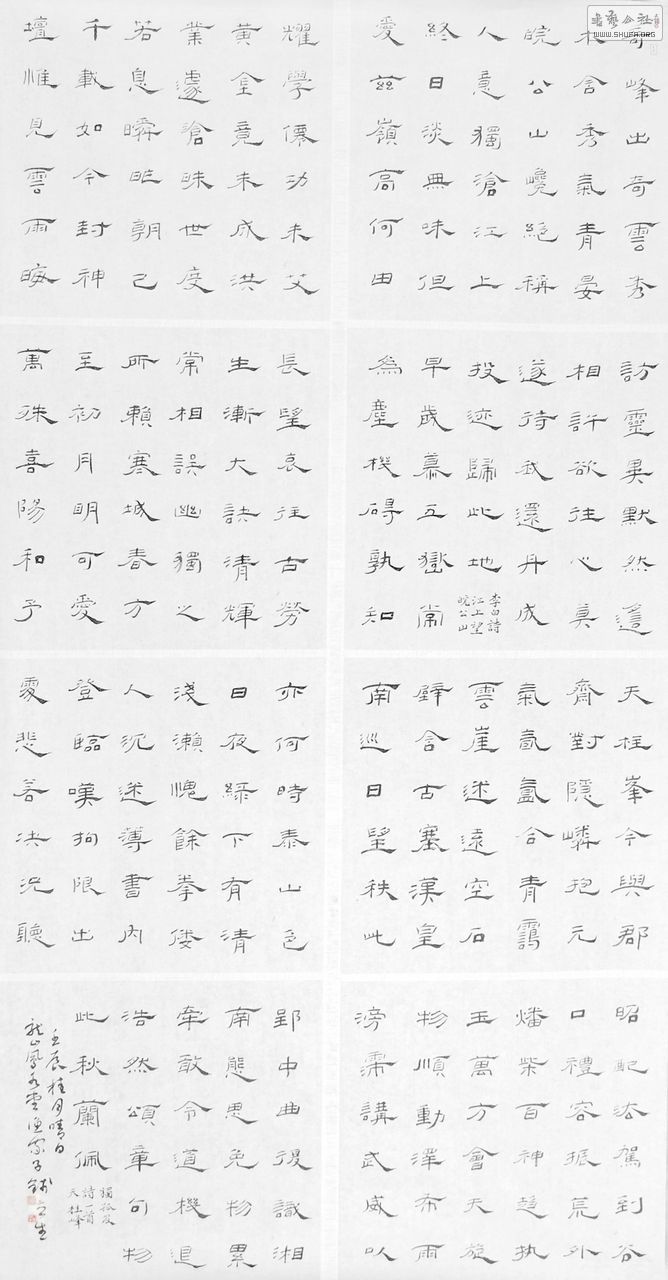 奇峰出奇雲秀
木含秀氣青晏
皖公山巉絕稱
人意獨滄江上
終日淡無味但
愛茲嶺高何由
訪靈異默然遙
相許欲往心莫
遂待我還丹成
投迹歸此地
李白詩
江上望
皖公山
早歲慕五嶽常
為塵機礙孰知
天柱峯今與郡
齋對隱嶙抱元
氣氤氳合青靄
雲崖迷遠空石
壁含古塞漢皇
南巡日望秩此
昭配法駕到谷
口禮容振荒外
燔柴百神趨執
玉萬方會天旋
物順動澤布雨
滂霈講武威以
耀學僊功未艾
黃金竟未成洪
業遽淪昧世度
若息瞬眂朝已
千載如今封神
壇惟見雲雨晦
長望哀往古勞
生漸大訣清輝
常相誤幽獨之
所賴寒城春方
至初月明可愛
萬殊喜陽和予
亦何時泰山色
日夜綠下有清
淺瀨愧餘拳僂
人沉迷薄書內
登臨嘆拘限出
處悲善決況聽
郢中曲復識湘
南態思免物累
牽敢令道機退
浩然頌章句物
此秋蘭佩
獨孤及
詩一首
天柱峰
壬辰桂月晴日
龍山鳳水雲漁家子
WWW.SHUFA.ORG